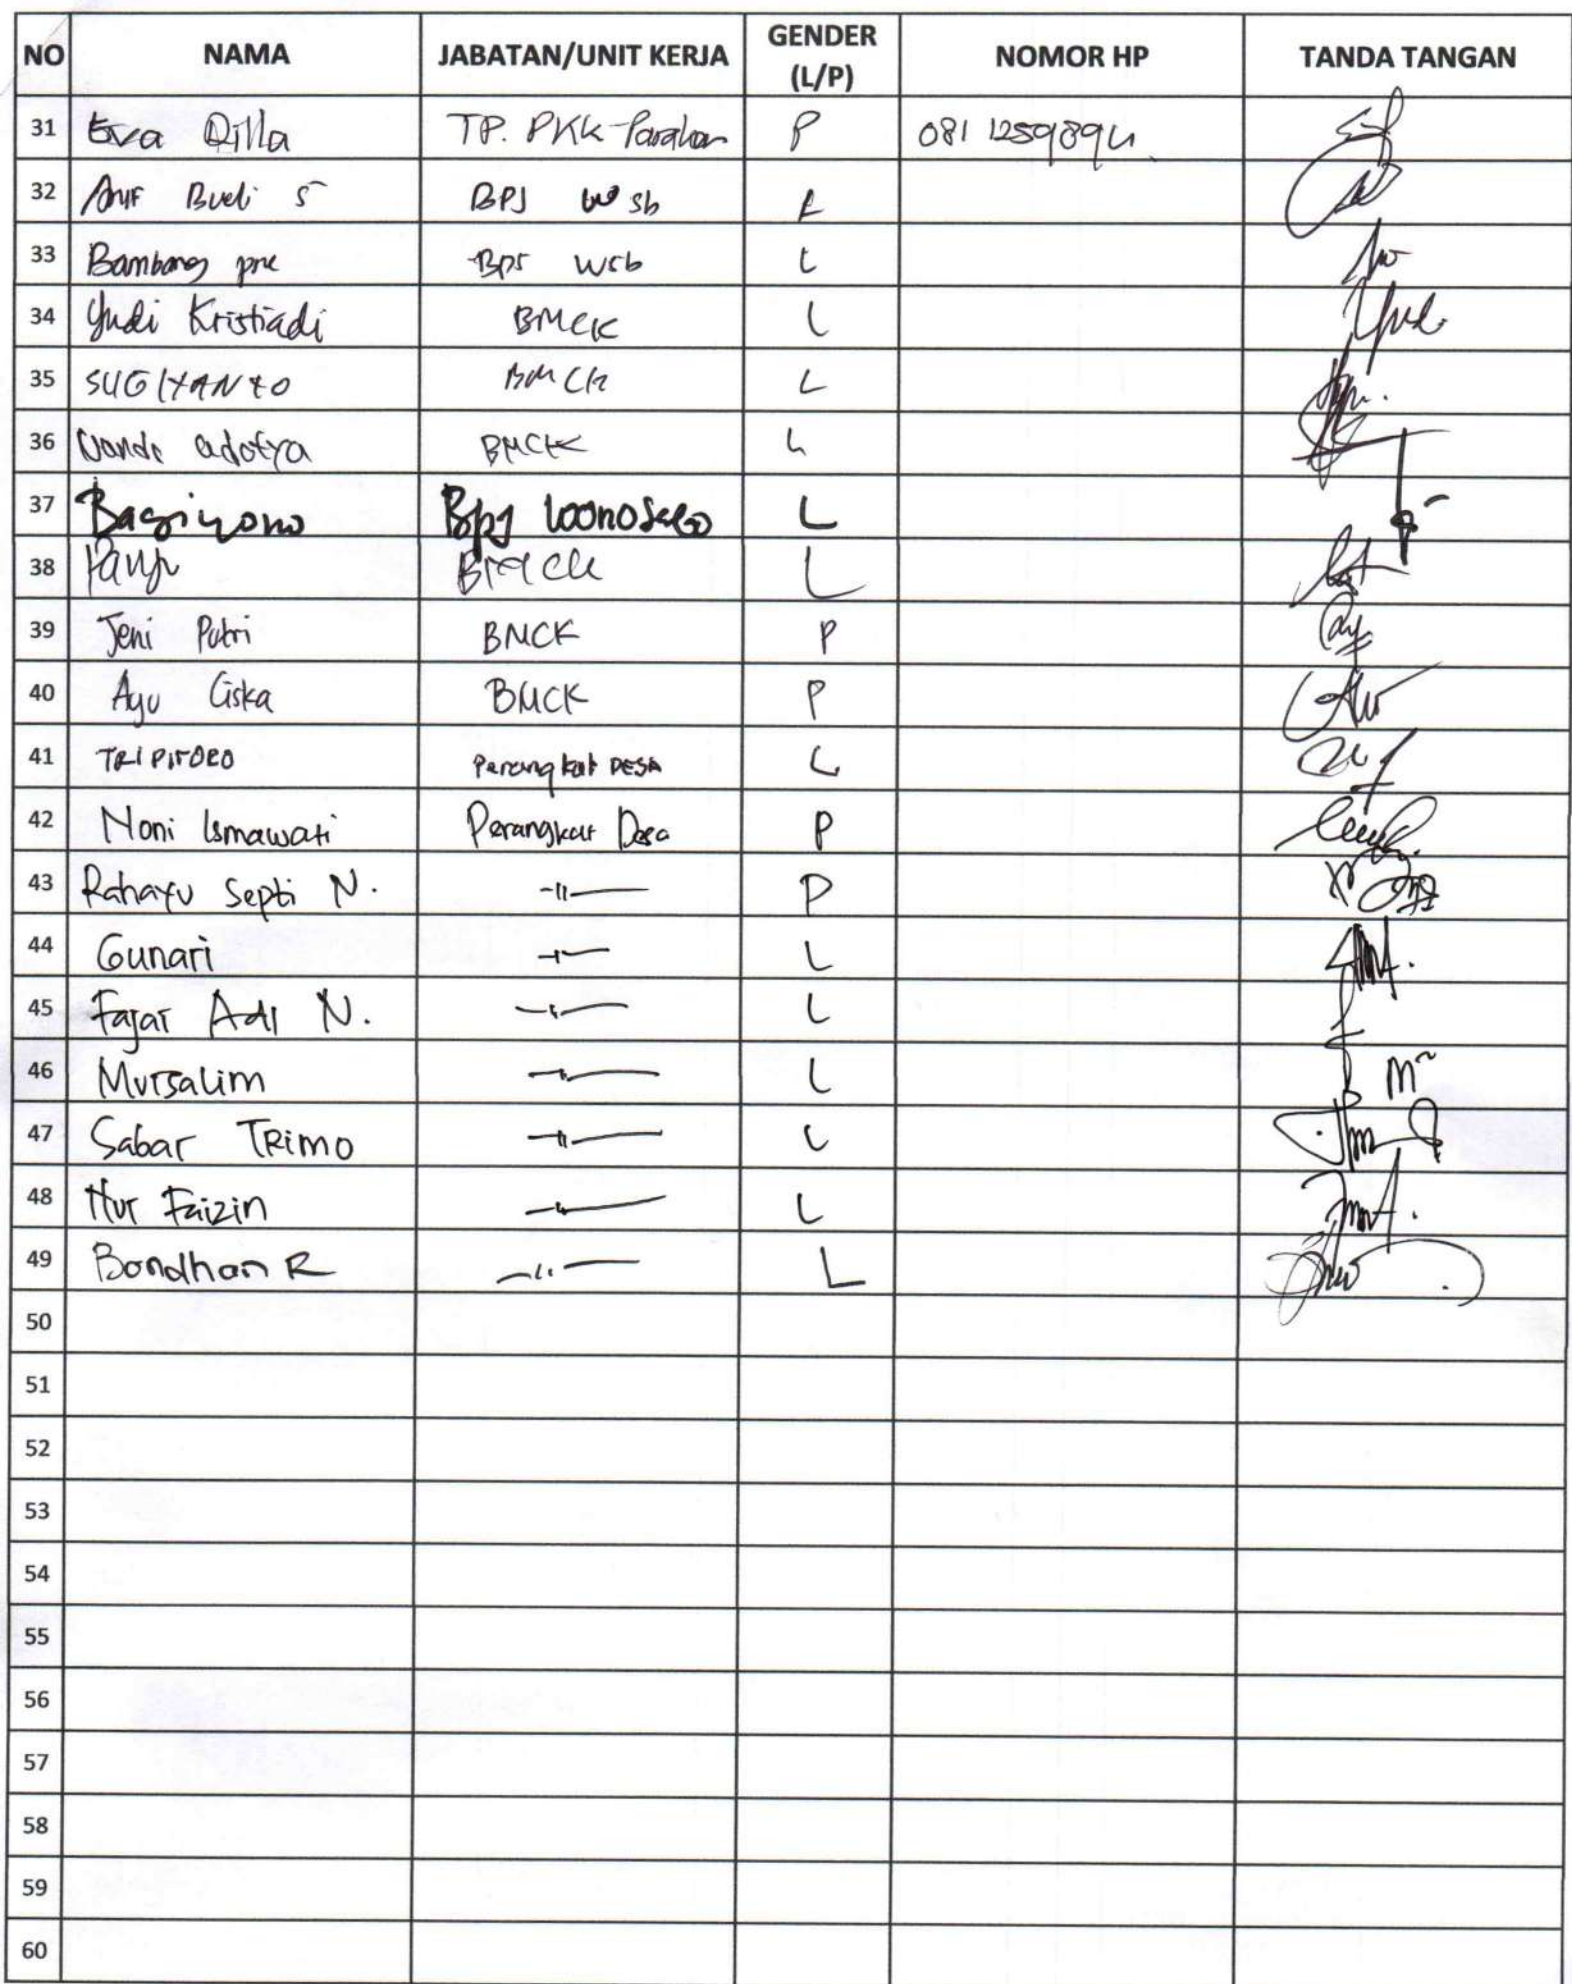 NO NAMA JABATAN/UNIT KERJA GENDER (L/P) NOMOR HP TANDA TANGAN
31 Eva Dilla TP. PKK-Parakan P 081 12598944
32 Arif Budi S BPJ Wsb L
33 Bambang BPJ Wsb L
34 Yudi Kristiadi BMCK L
35 SUGIYANTO BMCK L
36 BMCK L
37 Bagiyono BPJ Wonosobo L
38 Panji BMCK L
39 Jeni Putri BMCK P
40 Ayu Ciska BMCK P
41 TRI PITORO Perangkat DESA L
42 Noni Ismawati Perangkat Desa P
43 Rahayu Septi N. -11- P
44 Gunari -11- L
45 Fajar Adi N. -11- L
46 Mursalim -11- L
47 Sabar TRimo -11- L
48 Nur Faizin -11- L
49 Bondhan R -11- L
50
51
52
53
54
55
56
57
58
59
60